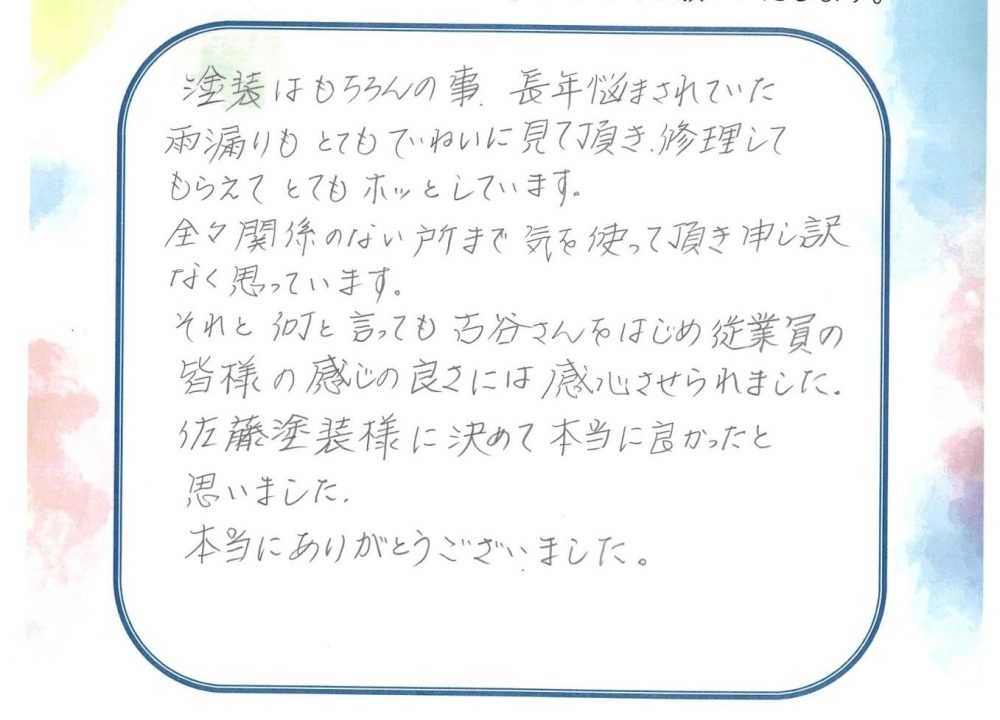 塗装はもちろんの事、長年悩まされていた
雨漏りもとてもていねいに見て頂き、修理して
もらえてとてもホッとしています。
全々関係のない所まで気を使って頂き申し訳
なく思っています。
それと何と言っても古谷さんをはじめ従業員の
皆様の感じの良さには感心させられました。
佐藤塗装様に決めて本当に良かったと
思いました。
本当にありがとうございました。